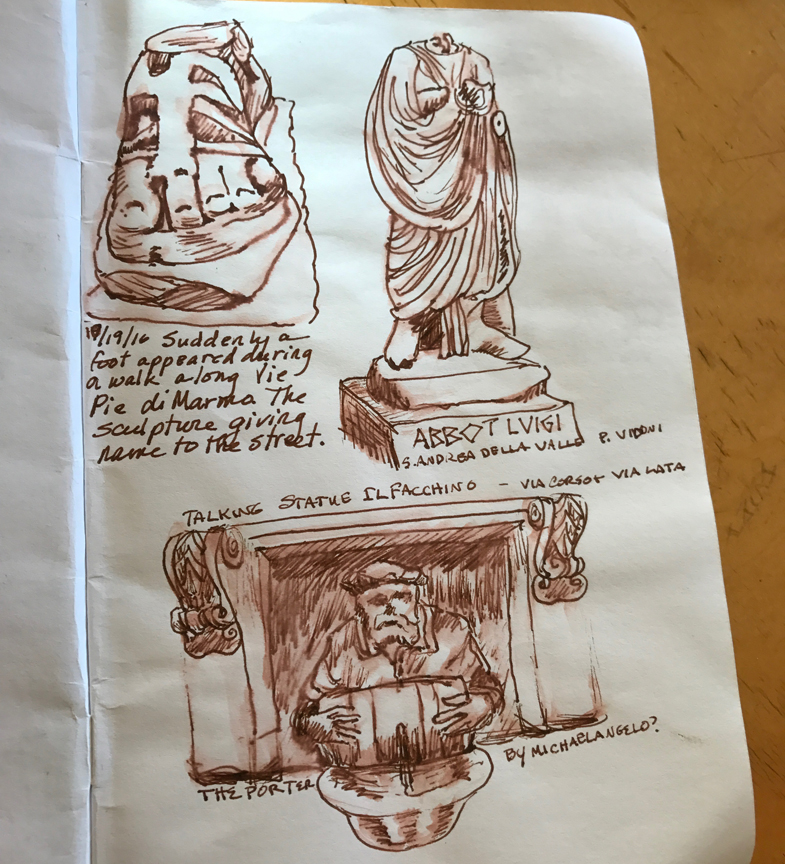 10/19/16 Suddenly a
foot appeared during
a walk along Vie
Pie di Marma The
sculpture giving
name to the street.
ABBOT LVIGI
S. ANDREA DELLA VALLE P. VIDONI
TALKING STATUE IL FACCHINO – VIA CORSO & VIA LATA
THE PORTER
BY MICHAELANGELO?